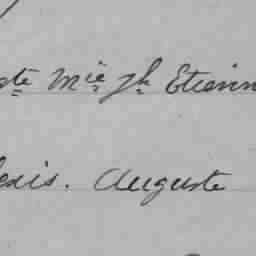 dte Mie Jh Etienn
lexis. Auguste